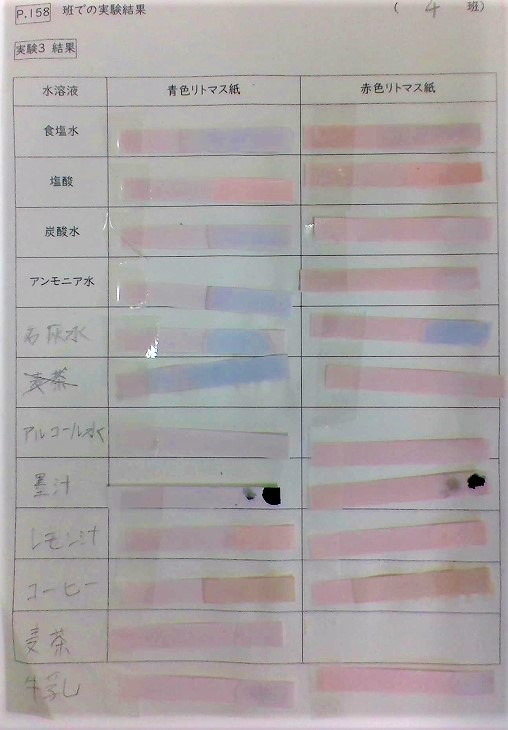 P.158 班での実験結果 ( 4 班)
実験3 結果
水溶液 青色リトマス紙 赤色リトマス紙
食塩水
塩酸
炭酸水
アンモニア水
石灰水
麦茶
アルコール水
墨汁
レモン汁
コーヒー
麦茶
牛乳